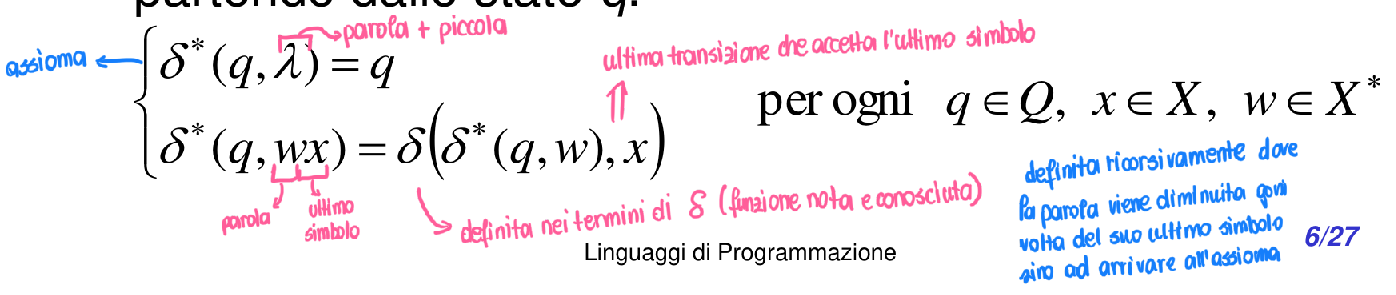 partendo dallo stato q.
parola + piccola
assioma
δ*(q, λ) = q
ultima transizione che accetta l'ultimo simbolo
per ogni q ∈ Q, x ∈ X, w ∈ X*
δ*(q, wx) = δ(δ*(q, w), x)
parola
ultimo
simbolo
definita nei termini di δ (funzione nota e conosciuta)
definita ricorsivamente dove
la parola viene diminuita ogni
volta del suo ultimo simbolo
sino ad arrivare all'assioma
Linguaggi di Programmazione
6/27